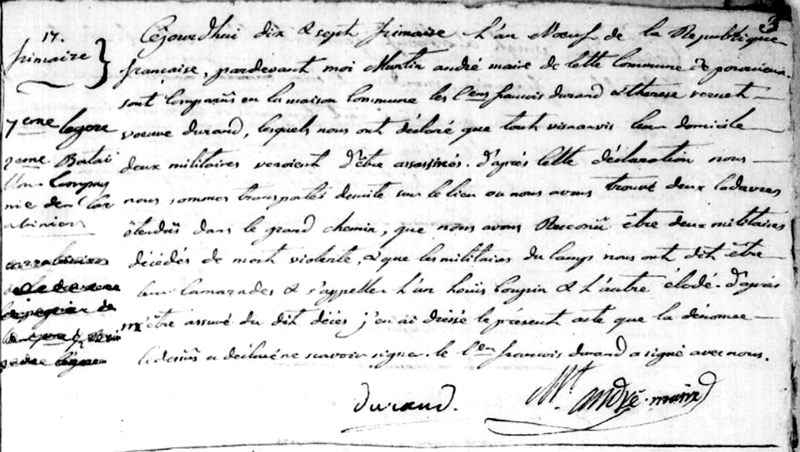 3
17.
frimaire
Cejourdhui dix & sept frimaire l'an Noeuf de la Republique
francaise, pardevant moi Martin andré maire de cette Commune de
sont Comparûs en la maison Commune les Cens francois durand & therese vernet
veuve durand, lesquels nous ont déclaré que tout visavis leur domicile
deux militaires venoient d'être assassinés. d'après cette déclaration nous
nous sommes transportés de suite sur le lieu ou nous avons trouvé deux Cadavres
étendûs dans le grand chemin, que nous avons Reconnû être deux militaires
décédés de mort violente, & que les militaires du Camp nous ont dit être
leur Camarades & s'appeller l'un Louis & l'autre élodé. d'après
m'être assuré du dit décès j'en ai dressé le présent acte que la dénomee
a declaré ne scavoir signer. le Cen francois durand a signé avec nous.
7eme legere
2eme Batai
llon Compag
nie de Car
abiniers
durand.
Mt. andré. maire